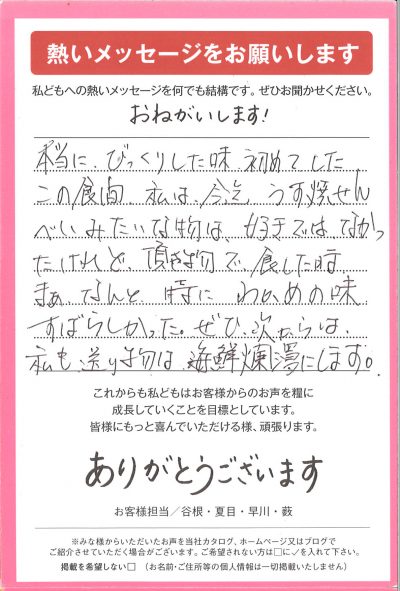 熱いメッセージをお願いします
私どもへの熱いメッセージを何でも結構です。ぜひお聞かせください。
おねがいします!
本当に、びっくりした味 初めてした
この食間、私は、今迄、うす焼せん
べいみたいな物は、好きでは、なかっ
たけれど、頂き物で、食した時
まぁ、なんと、特に わかめの味
すばらしかった。ぜひ、次からは、
私も、送り物は、海鮮爛漫にします。
これからも私どもはお客様からのお声を糧に
成長していくことを目標としています。
皆様にもっと喜んでいただける様、頑張ります。
ありがとうございます
お客様担当/谷根・夏目・早川・薮
※みな様からいただいたお声を当社カタログ、ホームページ又はブログで
ご紹介させていただく場合がございます。ご希望されない方は□に✓を入れて下さい。
掲載を希望しない□ (お名前・ご住所等の個人情報は一切掲載いたしません)